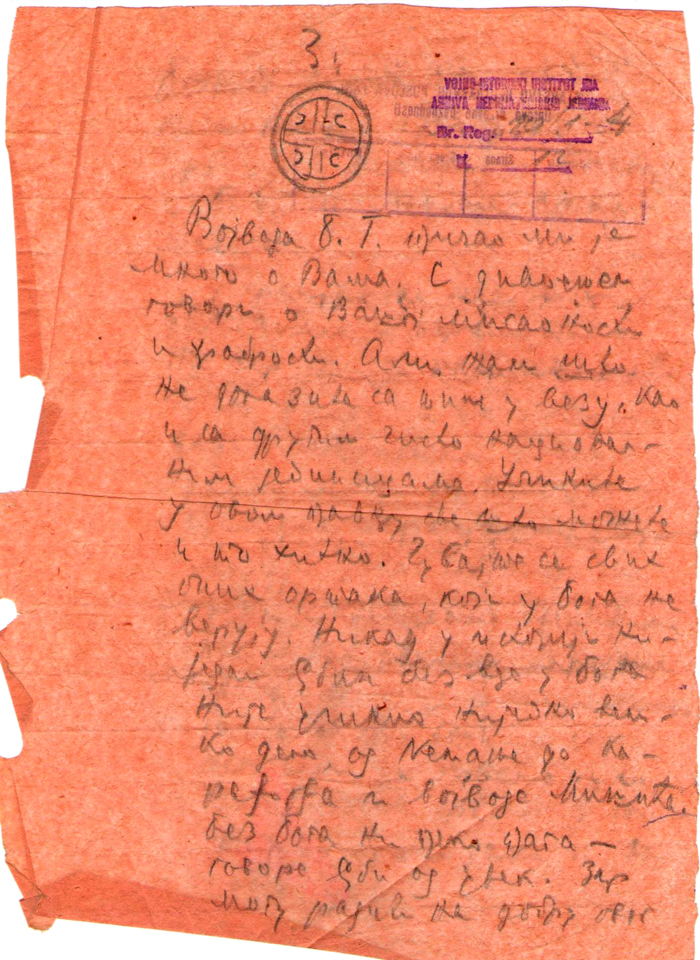 3.
VOJNO-ISTORISKI INSTITUT JNA
ARHIVA NEPRIJATELJSKIH JEDINICA
Br. Reg. 4
K 12
Војвода Б. Т. причао ми је
много о Вама. С дивљењем
говори о Вашој мисаоности
и храброст. Али, жали што
не долазите са њим у везу. Као
и са другим чисто национал-
ним јединицама. Учините
у овом правцу све што можете
и то хитно. Чувајте се свих
оних оршака, који у Бога не
верују. Никад у историји ни-
један Србин без вере у Бога
није учинио никакво вели-
ко дело, од Немање до Ка-
рађорђа и војводе Мишића.
без бога ни преко прага —
говоре Срби од увек. Зар
могу радити на добру овог